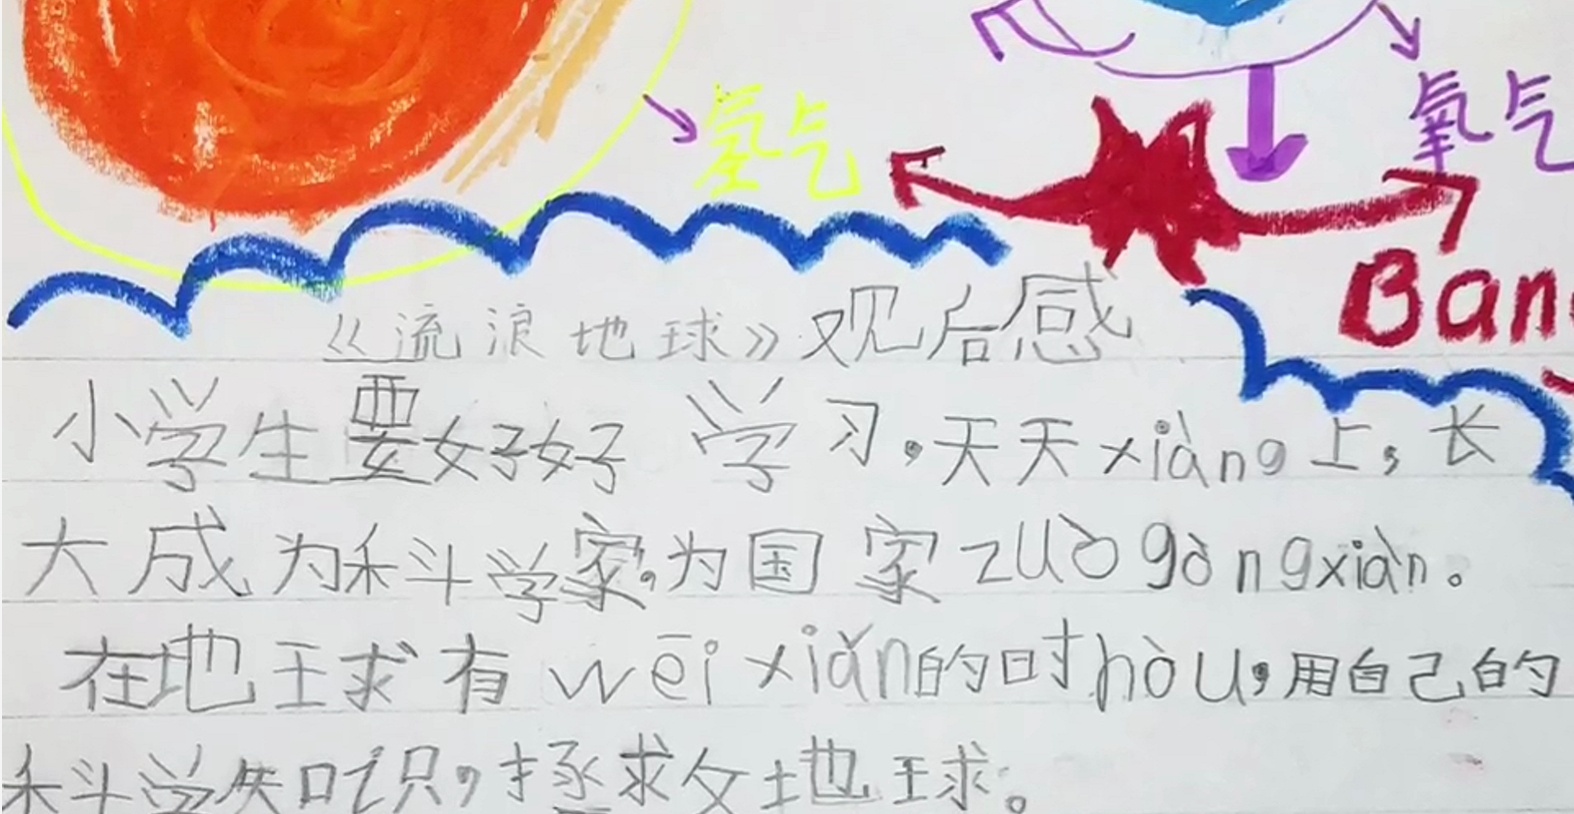 氢气
氧气
Bang
《流浪地球》观后感
小学生要好好学习,天天xiàng上,长
大成为科学家,为国家zuò gòngxiàn。
在地球有wēi xiǎn的时hòu,用自己的
科学知识,拯救地球。